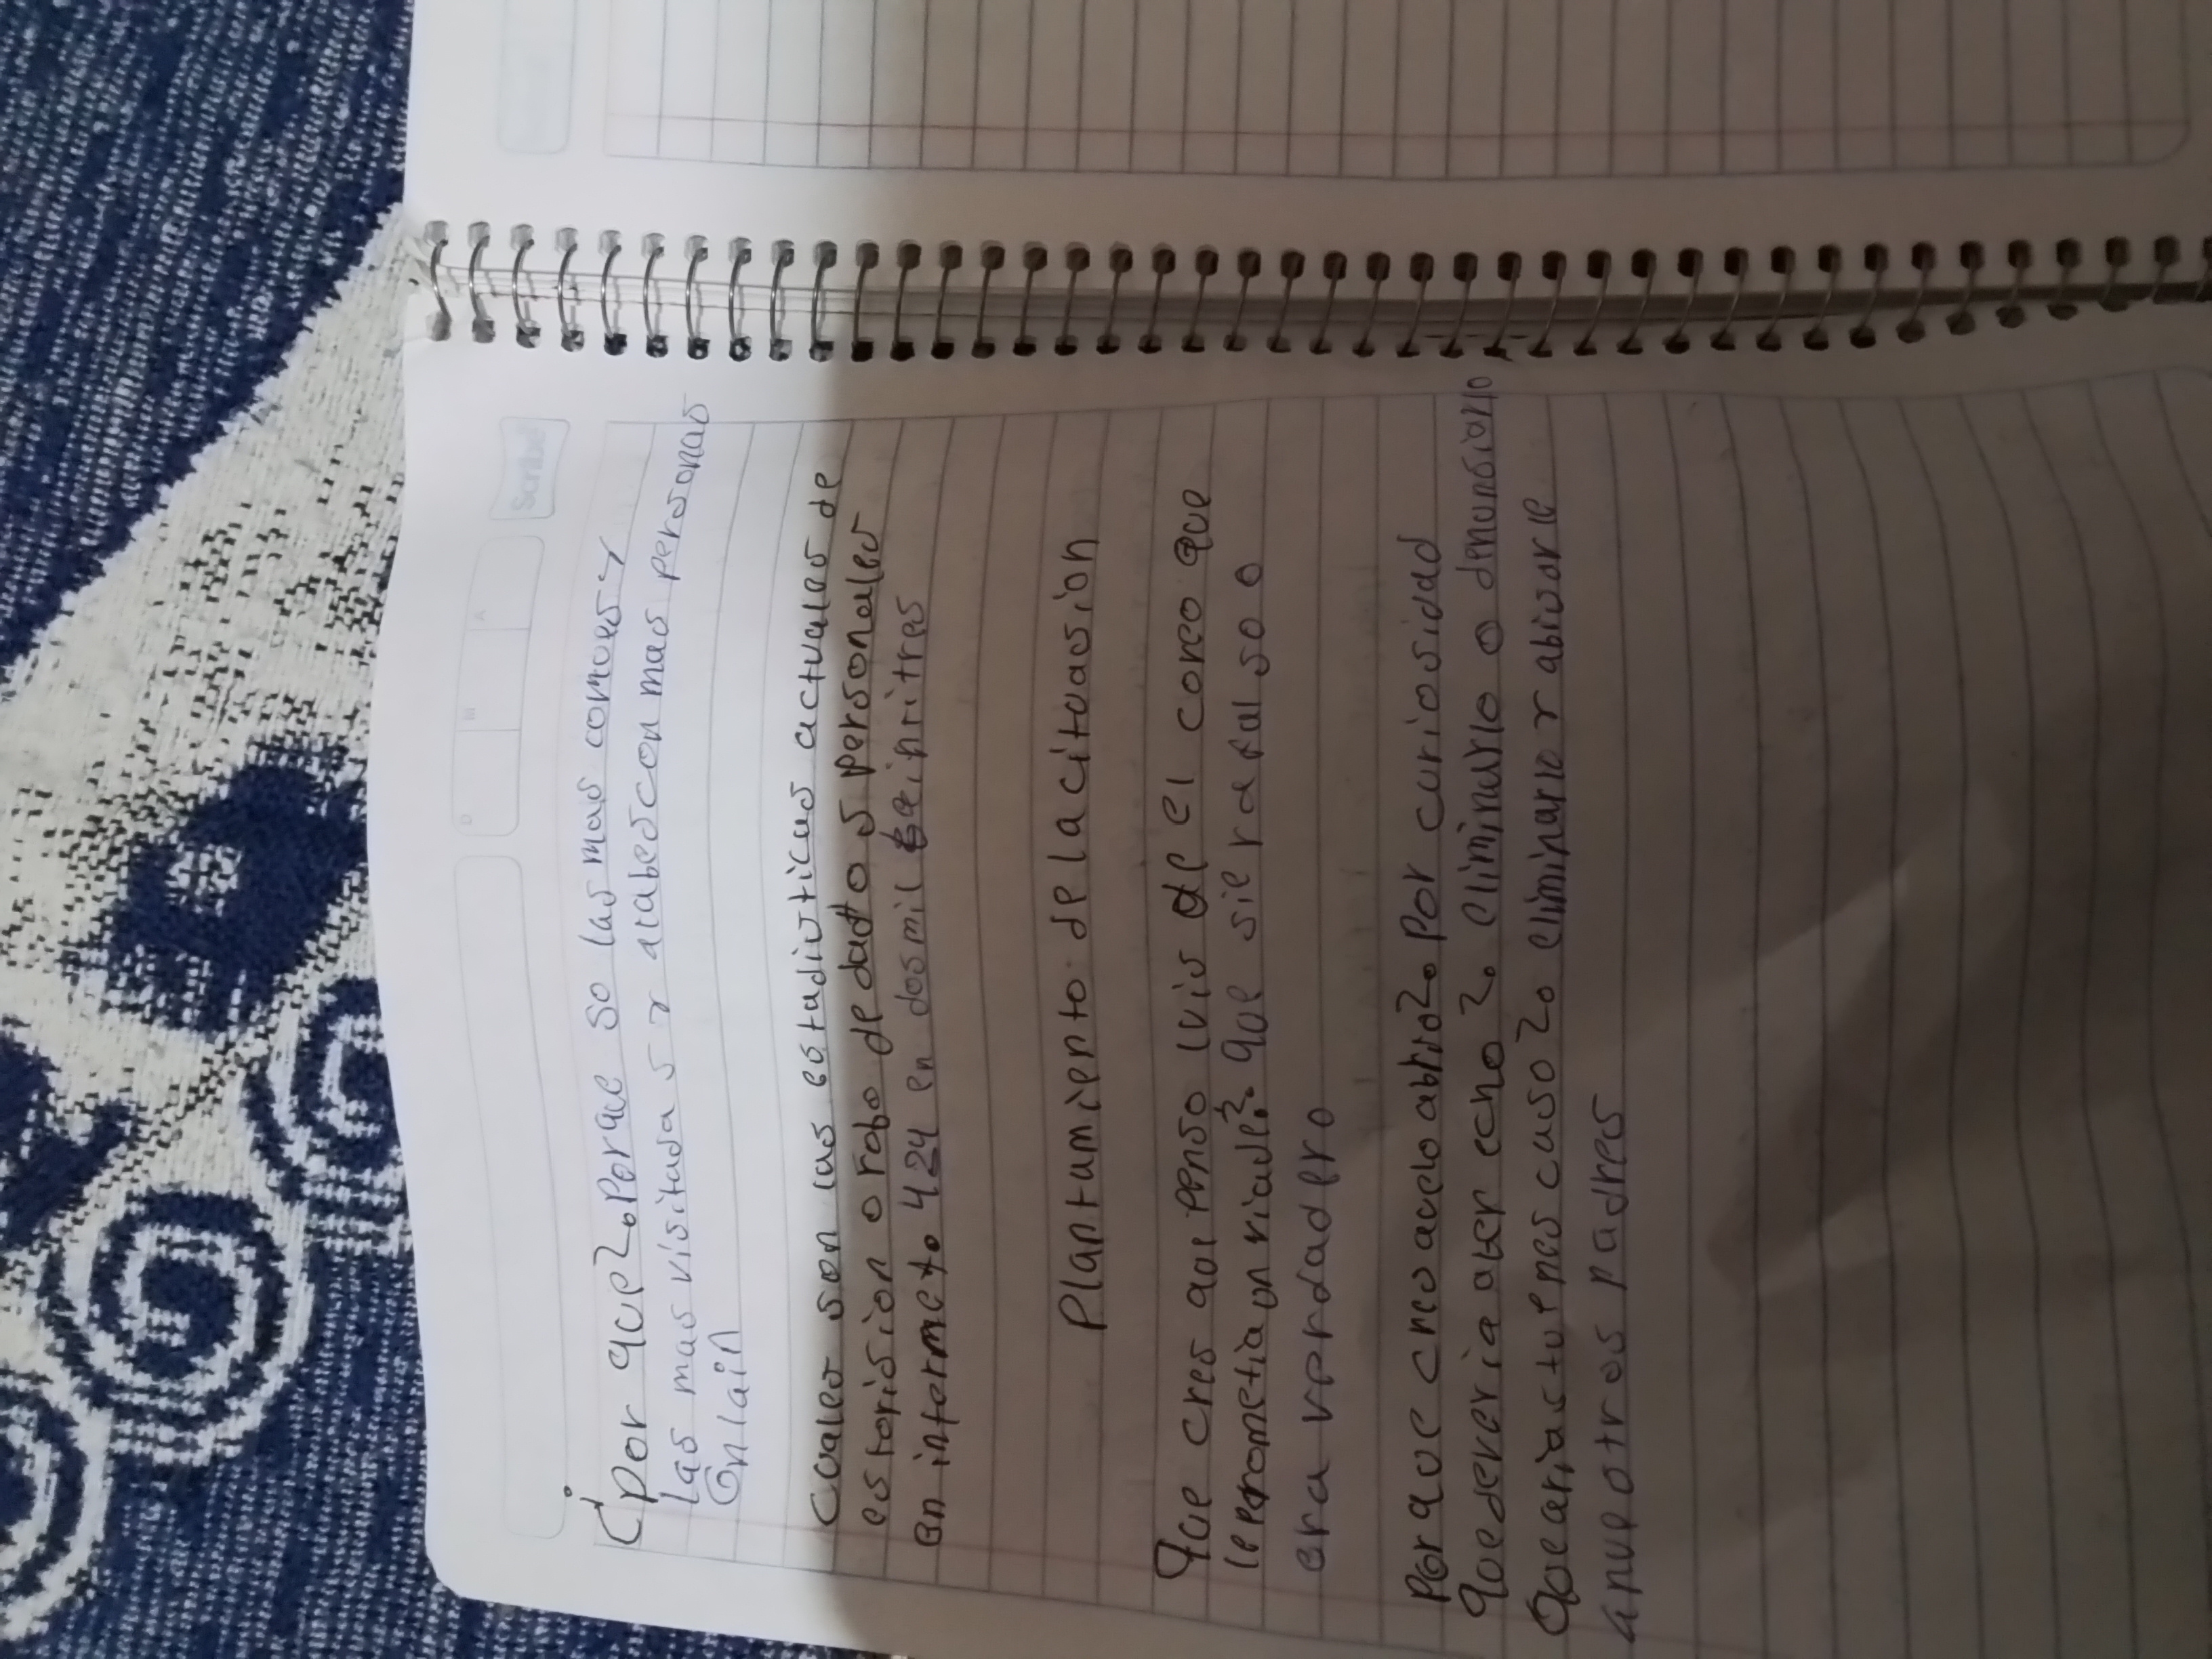 Scribe
D M A
¿por que? Porque so las mas comoes y
las mas visitadas r atabescon mas personas
Onlain
Cuales son las estadisticas actuales de
estorision o robo de datos personales
en internet. 424 en dosmil beintitres
Plantamiento de la cituasion
Que cres que penso luis de el coreo que
le prometia un viaje? que sie ra falso o
era verdadero
Por que cres que lo abrio? Por curiosidad
que deveria aber echo? eliminarlo o denunsiarlo
Que arias tu en es caso? eliminarlo r abisarle
a nuestros padres